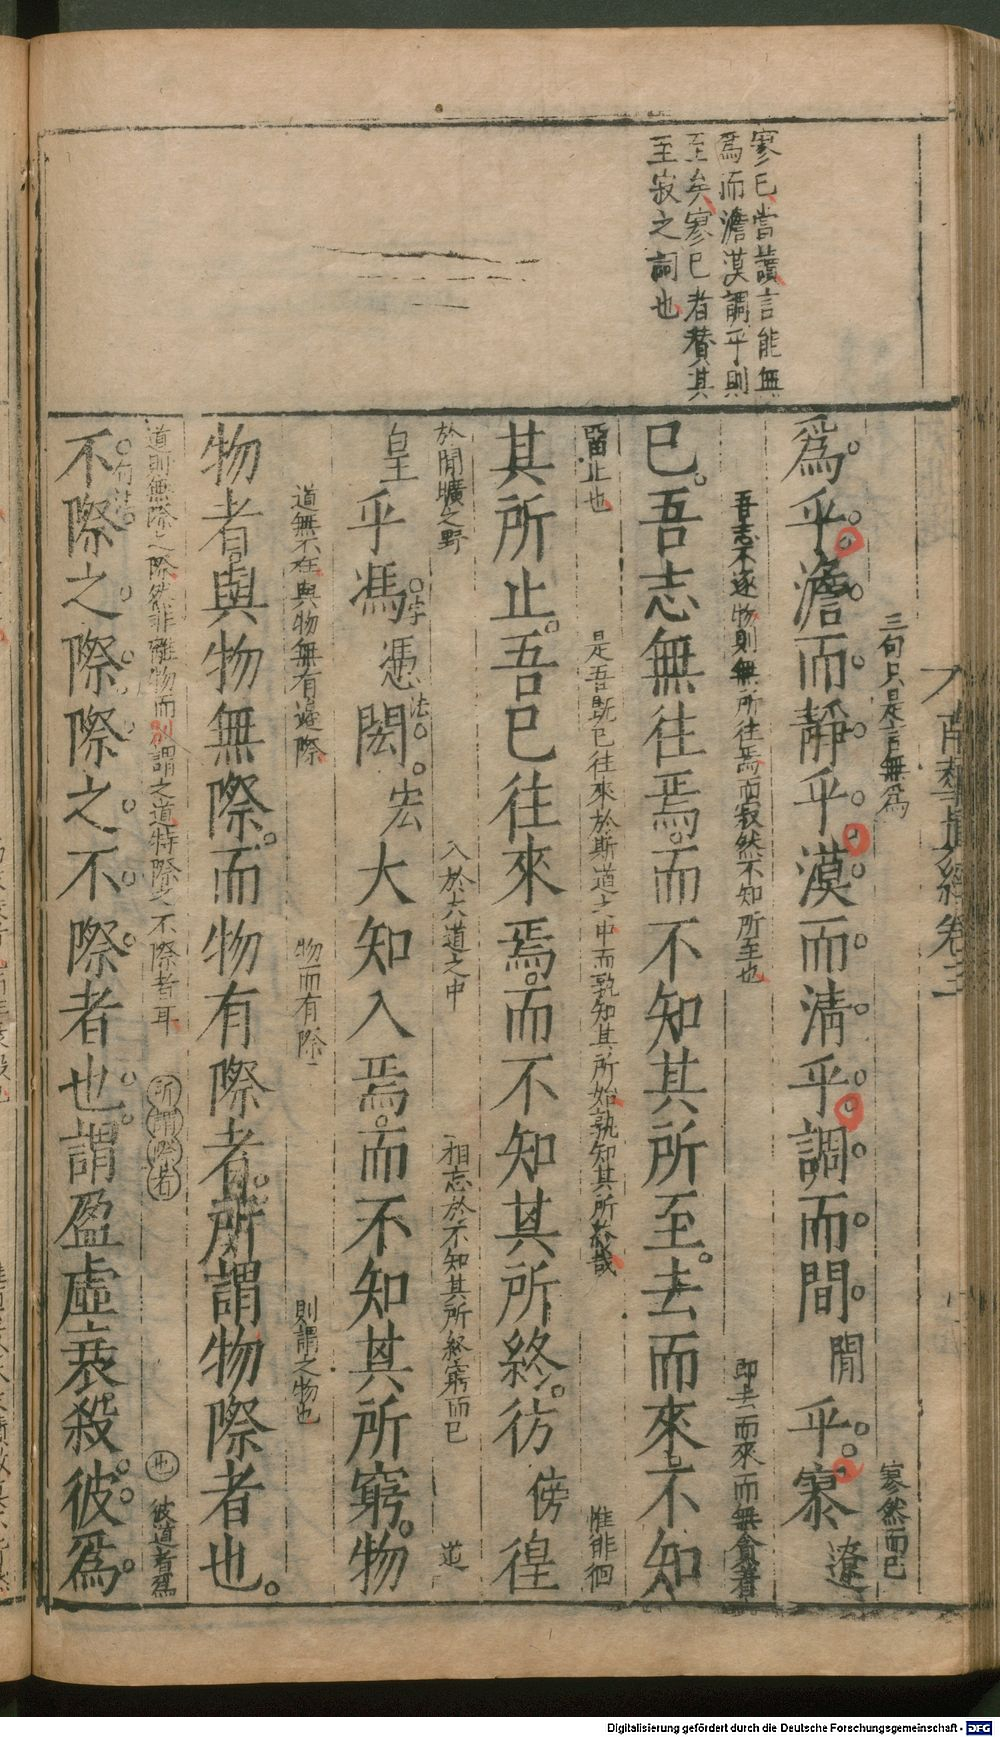 寥已當讀言能無
爲而澹漠調乎則
至矣寥已者贊其
至寂之詞也
南華眞經卷三
三句只是言無爲
寥然而已
爲乎澹而靜乎漠而淸乎調而間閒乎寥遼
吾志不逐物則無所往焉而寂然不知所至也
即去而來而無貪着
已吾志無往焉而不知其所至去而來不知
留止也
是吾旣已往來於斯道之中而孰知其所始孰知其所終哉
惟徘徊
其所止吾已往來焉而不知其所終彷傍徨
於閒曠之野
入於大道之中
相忘於不知其所終窮而已
道
字
法
皇乎馮憑閎宏大知入焉而不知其所窮物
道無不在與物無有邊際
物而有際
則謂之物也
物者與物無際而物有際者所謂物際者也
道則無際之際然非離物而別謂之道特際之不際者耳
所謂際者
也
彼道者爲
句法
不際之際際之不際者也謂盈虛衰殺彼爲
Digitalisierung gefördert durch die Deutsche Forschungsgemeinschaft - DFG